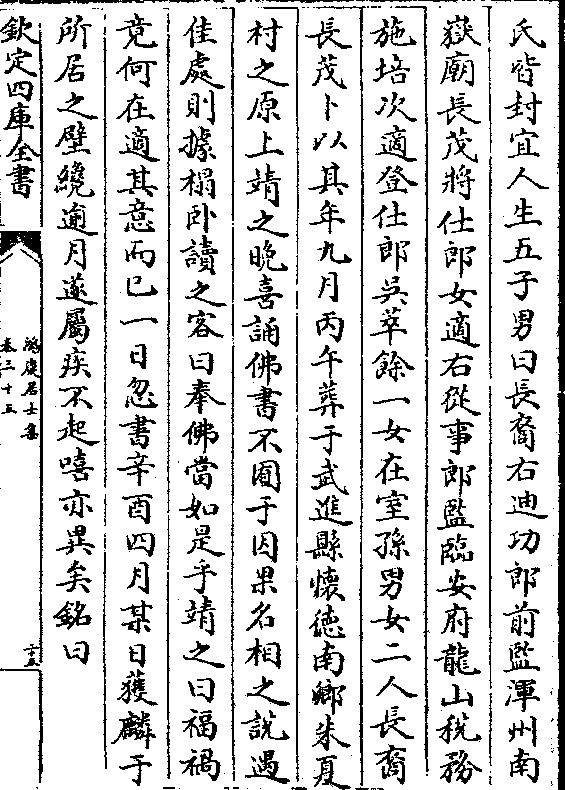 氏皆封宜人生五子男曰長裔右迪功郎前監潭州南
嶽廟長茂將仕郎女適右從事郎監臨安府龍山稅務
施培次適登仕郎吳萃餘一女在室孫男女二人長裔
長茂卜以其年九月丙午葬于武進縣懷德南鄉朱夏
村之原上靖之晚喜誦佛書不囿于因果名相之說遇
佳處則據榻卧讀之客曰奉佛當如是乎靖之曰福禍
竟何在適其意而已一日忽書辛酉四月某日獲麟于
所居之壁纔逾月遂屬疾不起嘻亦異矣銘曰
欽定四庫全書
鴻慶居士集
卷三十五